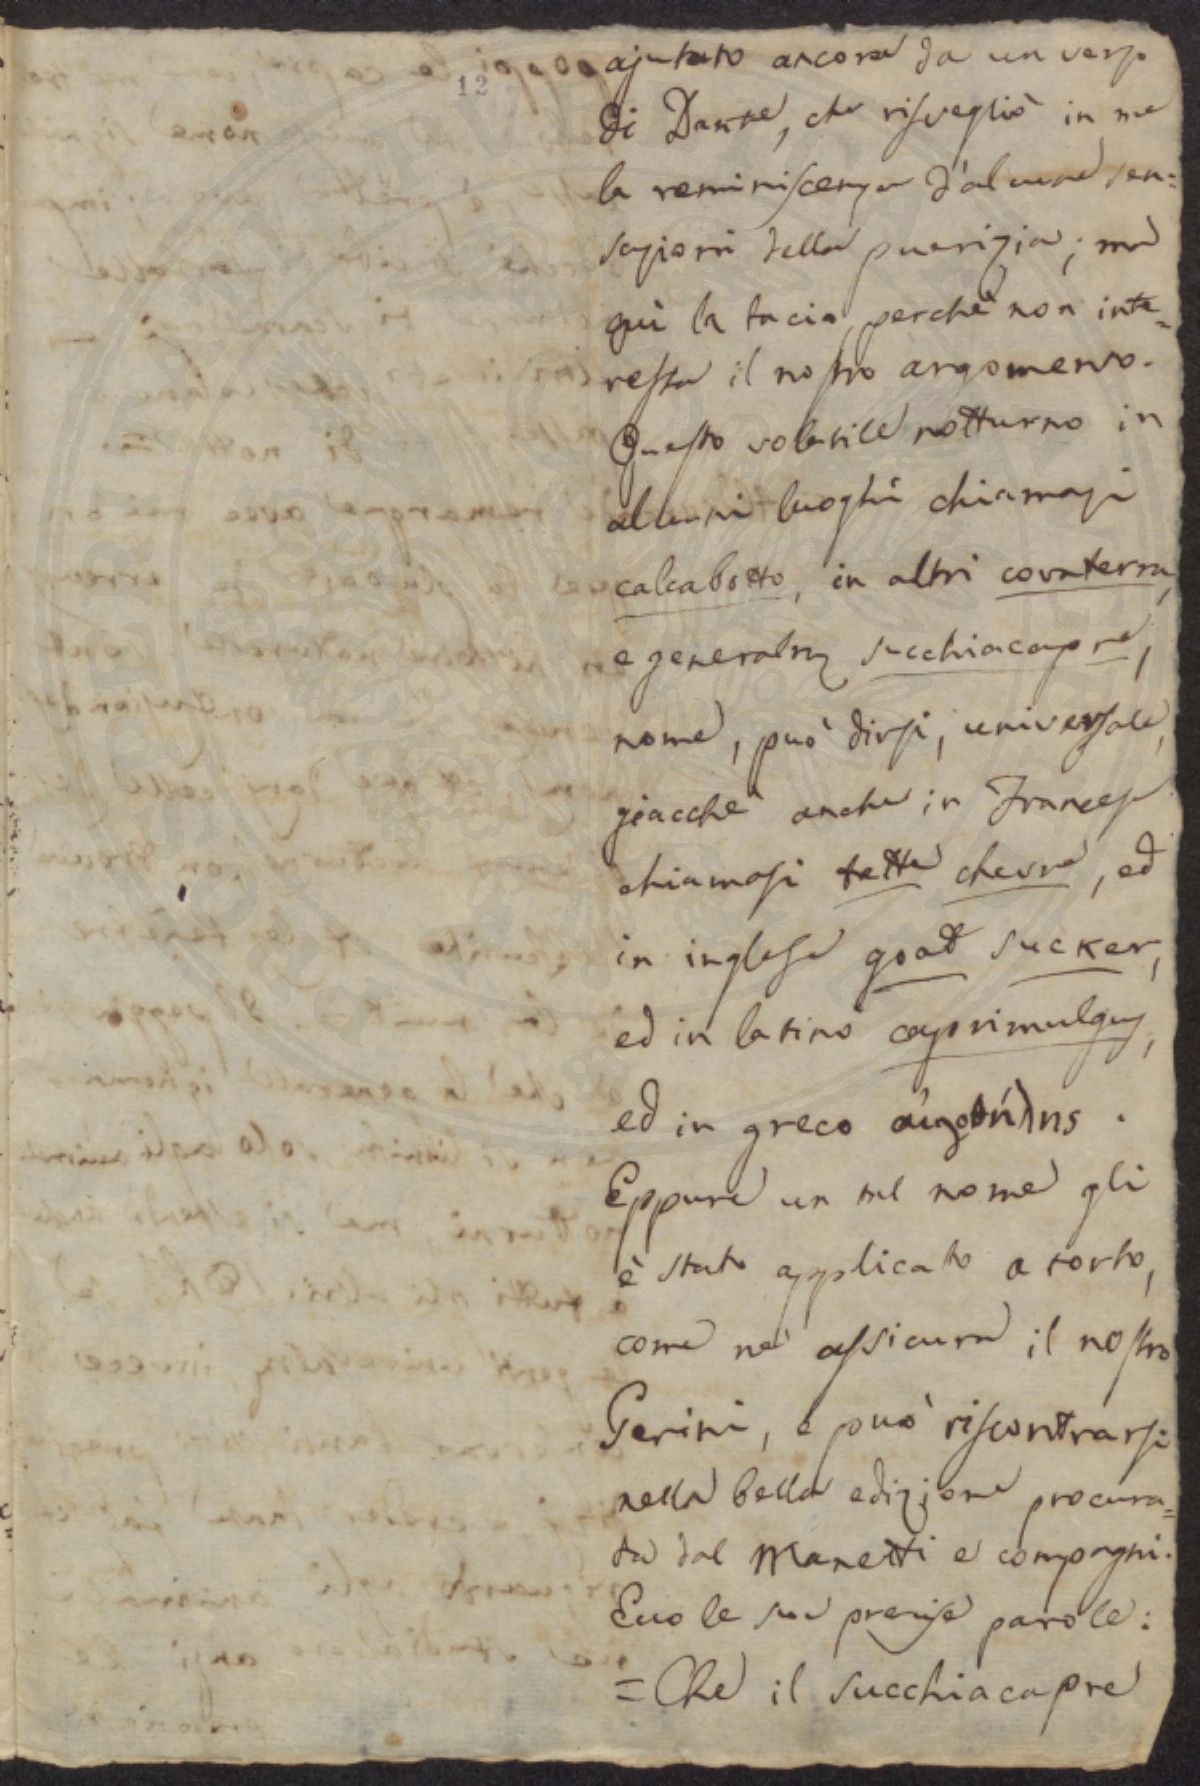 12
ajutato ancora da un verso
di Dante, che risvegliò in me
la reminiscenza d'alcune sen=
sazioni della puerizia; ma
quì la tacio, perchè non inte=
ressa il nostro argomento.
Questo volatile notturno in
alcuni luoghi chiamasi
calcabotto, in altri covaterra,
e generalm succhiacapre,
nome, può dirsi, universale,
giacchè anche in Francese
chiamasi tette chevre, ed
in inglese goat sucker,
ed in latino caprimulgus,
ed in greco
Eppure un tal nome gli
è stato applicato a torto,
come ne assicura il nostro
Gerini, e può riscontrarsi
nella bella edizione procura=
ta dal Manetti e compagni.
Ecco le sue precise parole:
= Che il succhiacapre